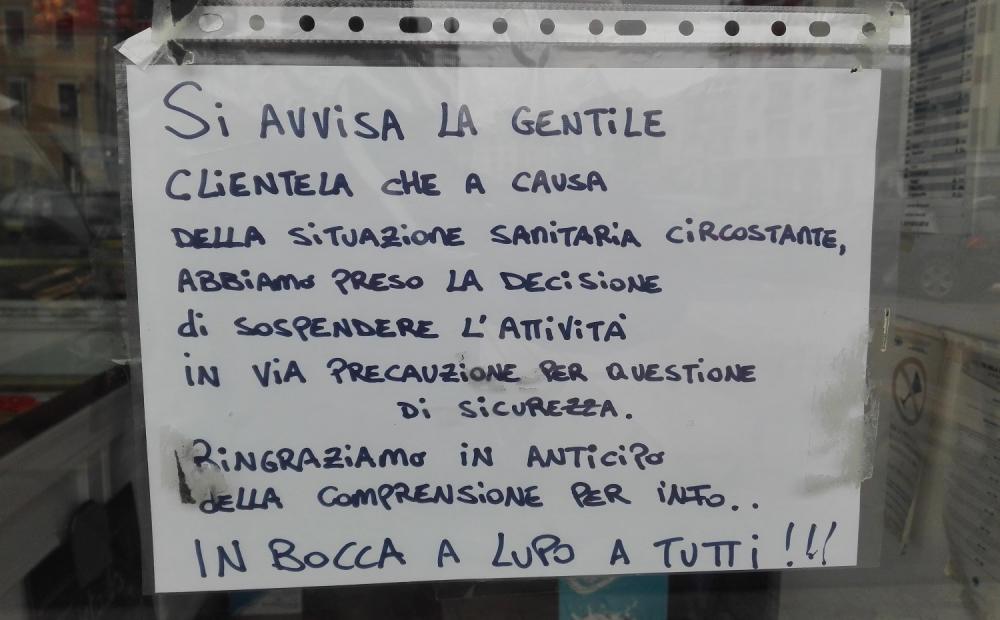 Si AVVISA LA GENTILE
CLIENTELA CHE A CAUSA
DELLA SITUAZIONE SANITARIA CIRCOSTANTE,
ABBIAMO PRESO LA DECISIONE
di SOSPENDERE L'ATTIVITÀ
IN VIA PRECAUZIONE PER QUESTIONE
DI SICUREZZA.
RINGRAZIAMO IN ANTICIPO
DELLA COMPRENSIONE PER INFO..
IN BOCCA A LUPO A TUTTI!!!